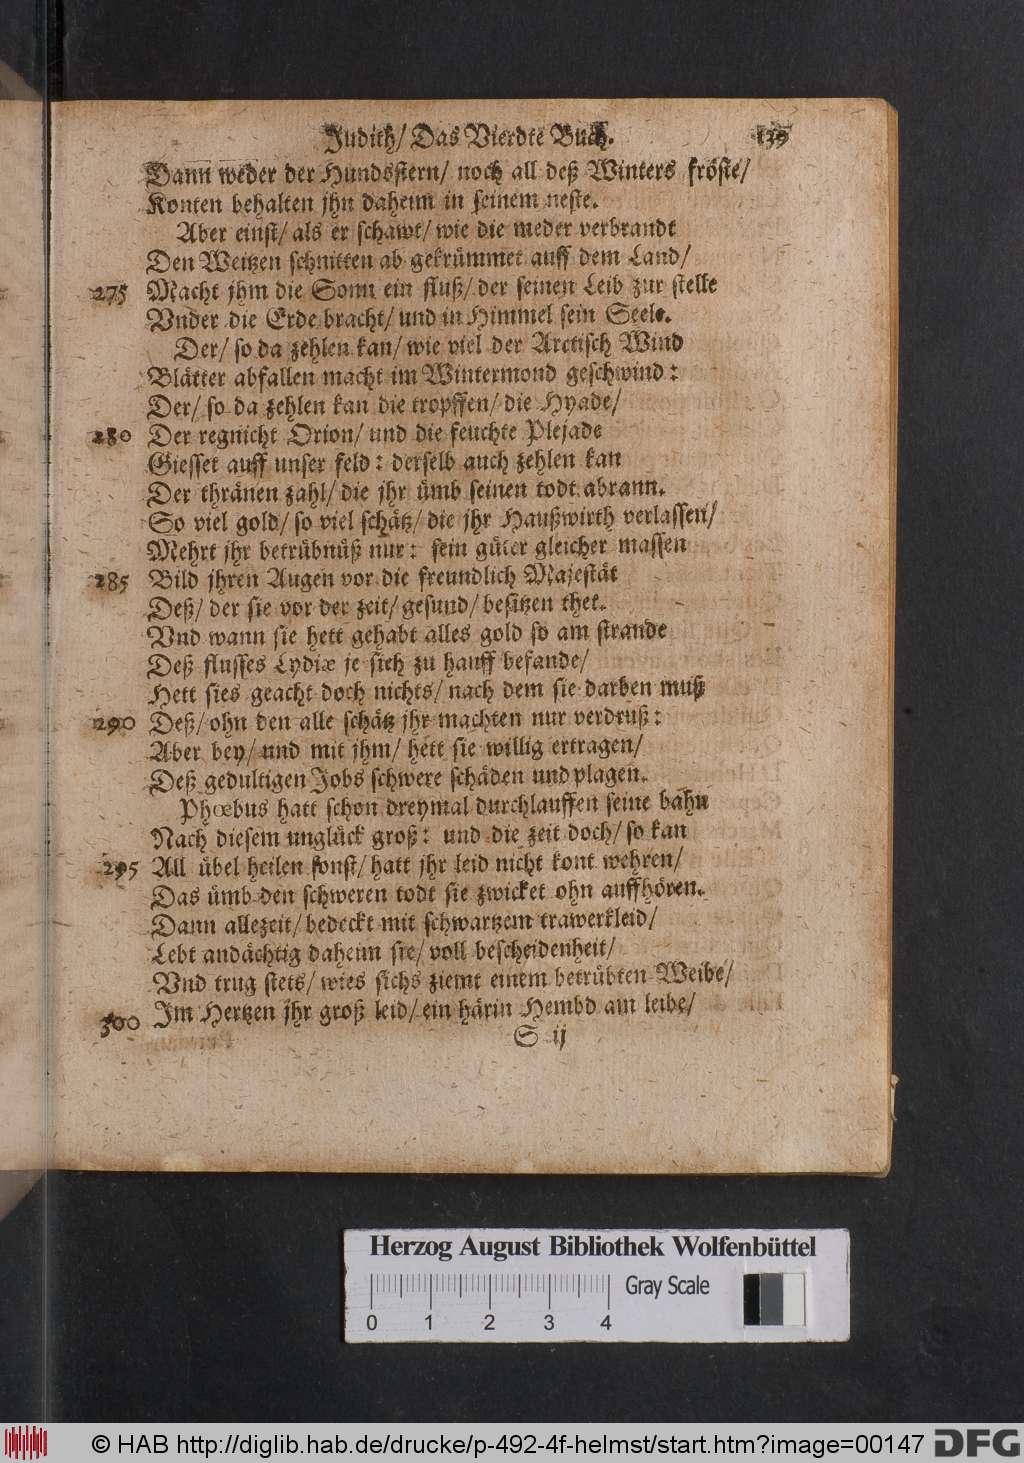 Judith/ Das Vierdte Buch. 139
Dann weder der Hundsstern/ noch all deß Winters fröste/
Konten behalten jhn daheim in seinem neste.
Aber einst/ als er schawt/ wie die meder verbrandt
Den Weitzen schnitten ab gekrümmet auff dem Land/
275 Macht jhm die Sonn ein fluß/ der seinen Leib zur stelle
Vnder die Erde bracht/ und in Himmel sein Seele.
Der/ so da zehlen kan/ wie viel der Arctisch Wind
Blätter abfallen macht im Wintermond geschwind:
Der/ so da zehlen kan die tropffen/ die Hyade/
280 Der regnicht Orion/ und die feuchte Plejade
Giesset auff unser feld: derselb auch zehlen kan
Der thränen zahl/ die jhr ümb seinen todt abrann.
So viel gold/ so viel schätz/ die jhr Haußwirth verlassen/
Mehrt jhr betrübnüß nur: sein güter gleicher massen
285 Bild jhren Augen vor die freundlich Majestät
Deß/ der sie vor der zeit/ gesund/ besitzen thet.
Vnd wann sie hett gehabt alles gold so am strande
Deß flusses Lydiæ je sich zu hauff befande/
Hett sies geacht doch nichts/ nach dem sie darben muß
290 Deß/ ohn den alle schätz jhr machten nur verdruß:
Aber bey/ und mit jhm/ hett sie willig ertragen/
Deß gedultigen Jobs schwere schäden und plagen.
Phœbus hatt schon dreymal durchlauffen seine bahn
Nach diesem unglück groß: und die zeit doch/ so kan
295 All übel heilen sonst/ hatt jhr leid nicht kont wehren/
Das ümb den schweren todt sie zwicket ohn auffhören.
Dann allezeit/ bedeckt mit schwartzem trawerkleid/
Lebt andächtig daheim sie/ voll bescheidenheit/
Vnd trug stets/ wies sichs ziemt einem betrübten Weibe/
300 Im Hertzen jhr groß leid/ ein härin Hembd am leibe/
S ij
Herzog August Bibliothek Wolfenbüttel
Gray Scale
0 1 2 3 4
© HAB http://diglib.hab.de/drucke/p-492-4f-helmst/start.htm?image=00147 DFG